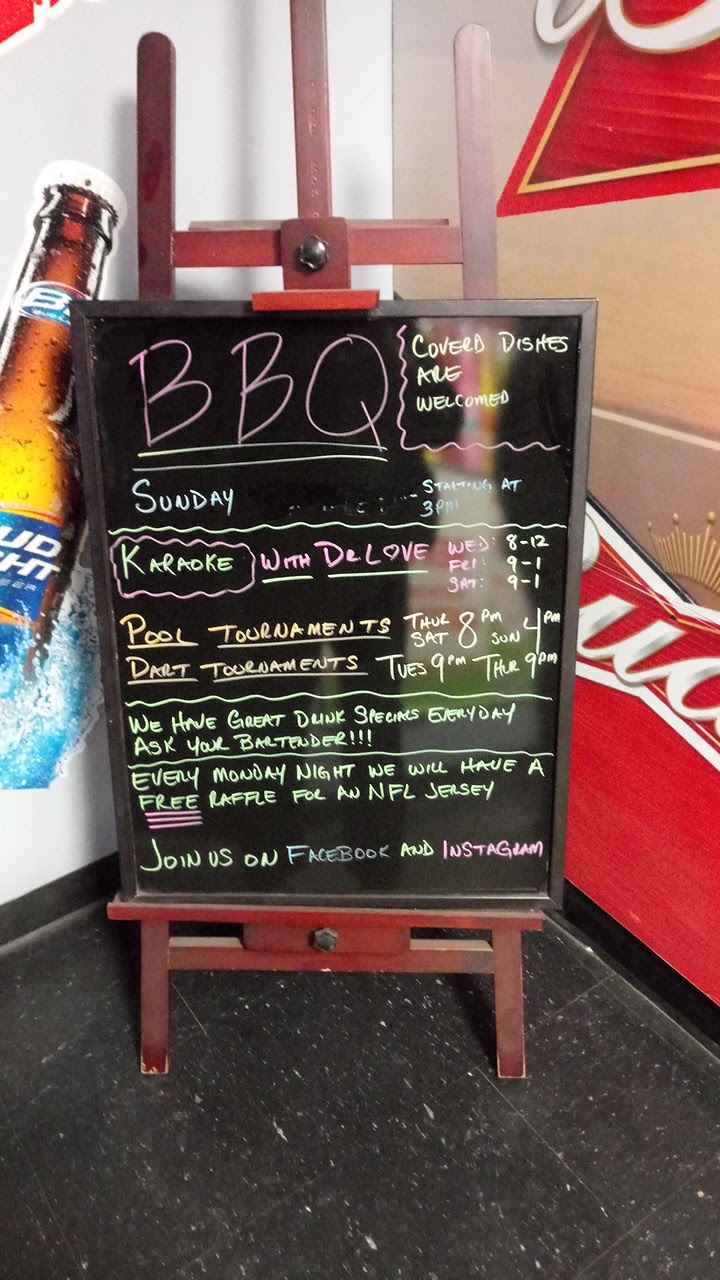 BBQ
COVERD DISHES
ARE
WELCOMED
SUNDAY
STARTING AT
3PM
KARAOKE WITH DR. LOVE
WED: 8-12
FRI: 9-1
SAT: 9-1
POOL TOURNAMENTS THUR SAT 8PM SUN 4PM
DART TOURNAMENTS TUES 9PM THUR 9PM
WE HAVE GREAT DRINK SPECIALS EVERYDAY
ASK YOUR BARTENDER!!!
EVERY MONDAY NIGHT WE WILL HAVE A
FREE RAFFLE FOR AN NFL JERSEY
JOIN US ON FACEBOOK AND INSTAGRAM